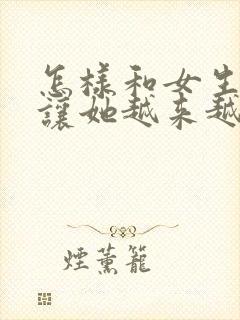 怎樣和女生
讓她越來越
煙薰籠